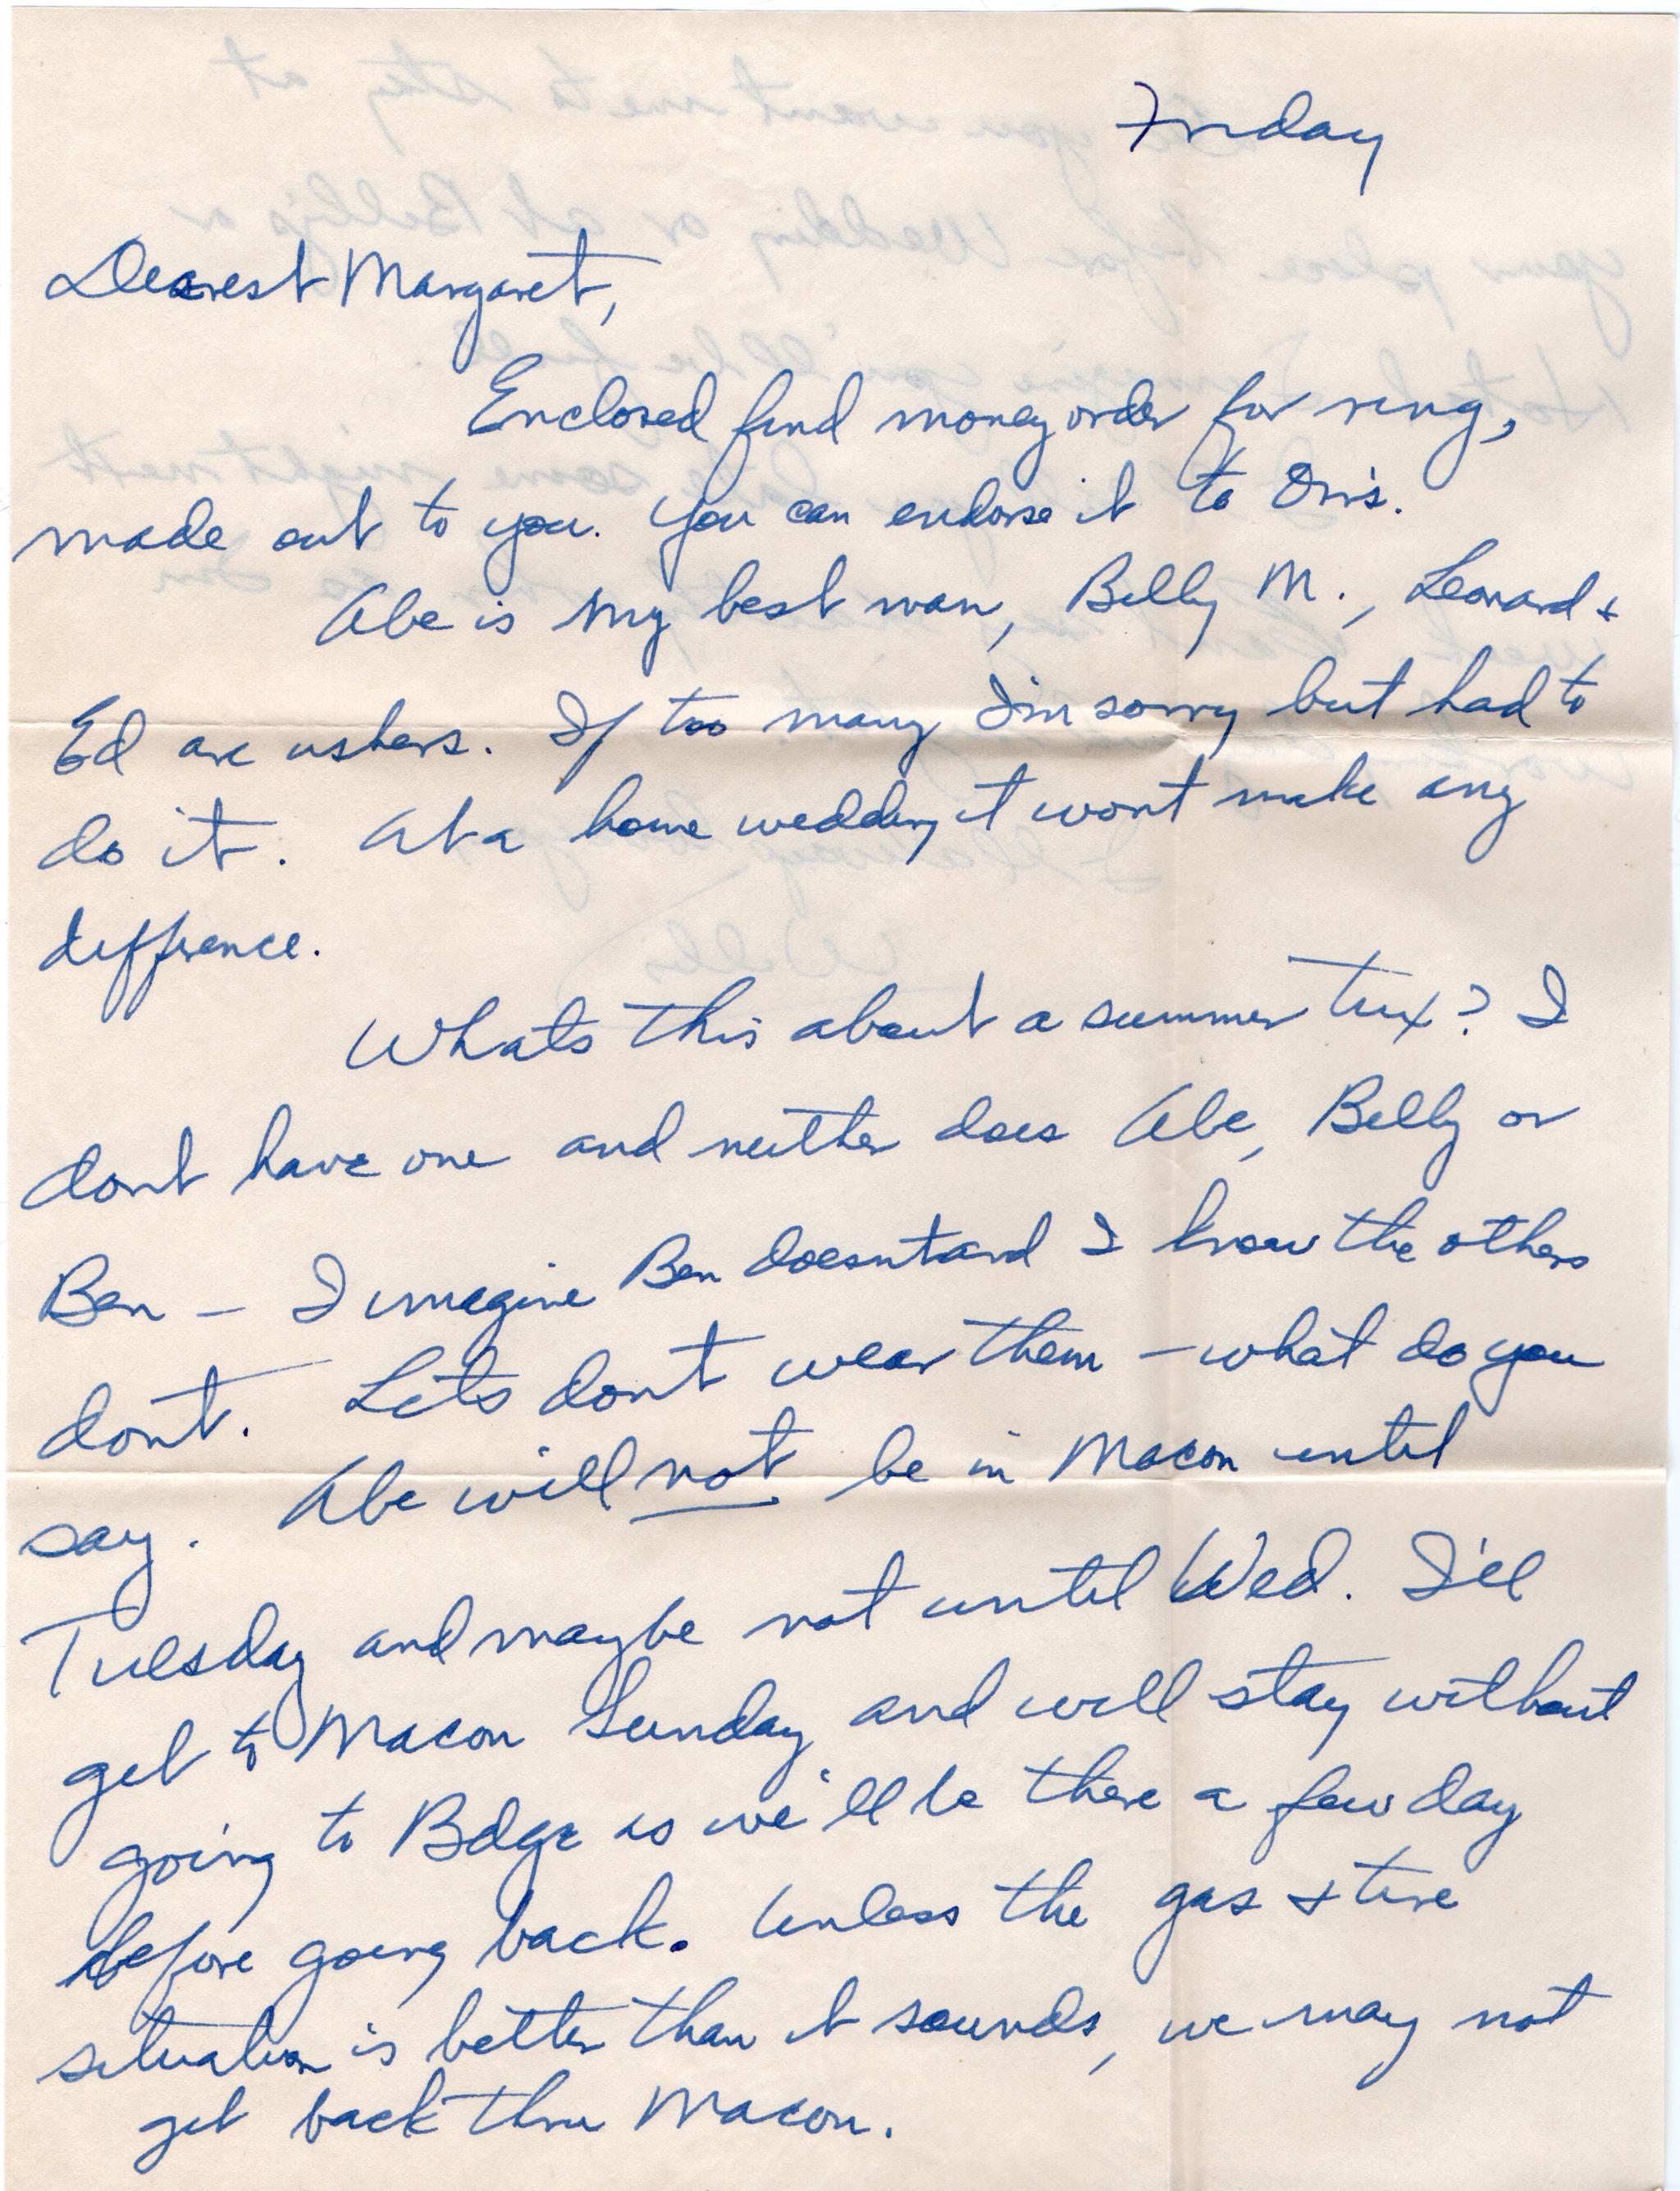 Friday
Dearest Margaret,
Enclosed find money order for ring,
made out to you. You can endorse it to
Abe is my best man, Billy M., Leonard +
Ed are ushers. If too many I'm sorry but had to
do it. At a home wedding it wont make any
diffrence.
Whats this about a summer tux? I
dont have one and neither does Abe, Billy or
Ben – I imagine Ben doesnt and I know the others
dont. Lets dont wear them – what do you
say. Abe will not be in Macon until
Tuesday and maybe not until Wed. I'll
get to Macon Sunday and will stay without
going to Bdge as we'll be there a few day
before going back. Unless the gas + tire
situation is better than it sounds, we may not
get back thru Macon.